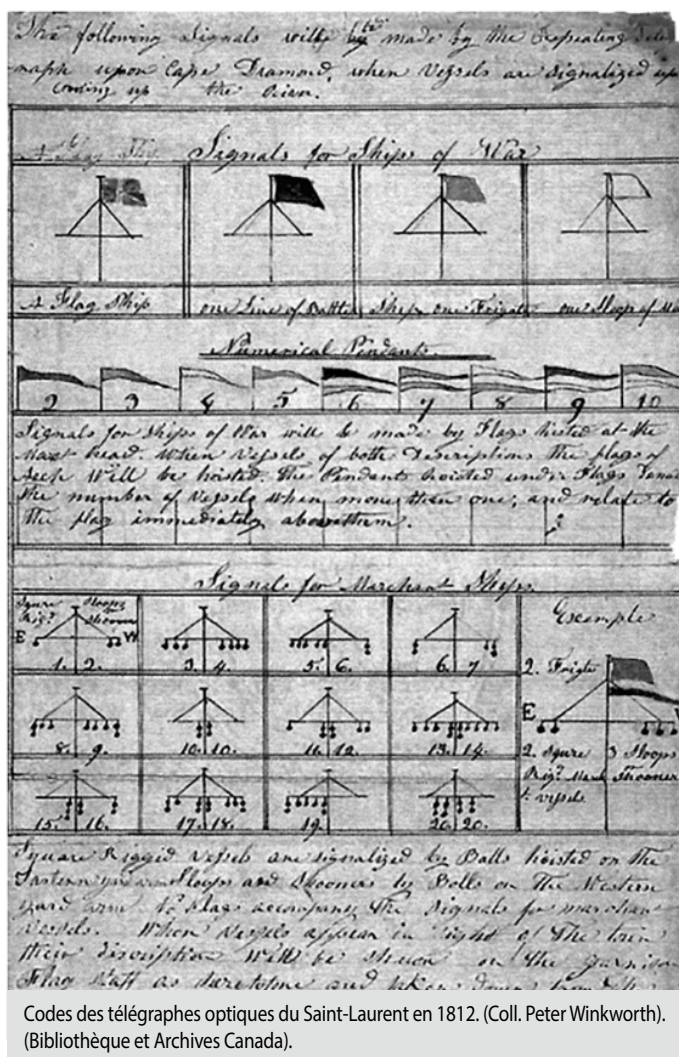 The following Signals will be made by the Repeating Tele
graph upon Cape Diamond, when Vessels are signalized up
coming up the River.
Signals for Ships of War
A Flag Ship
one Line of Battle
Ship
one Frigate
one Sloop of
Numerical Pendants
2 3 4 5 6 7 8 9 10
Signals for Ships of War will be made by Flags hoisted at the
Mast head. When Vessels of both Descriptions the flags of
Each Will be hoisted. The Pendants hoisted under Flags
the number of Vessels when more than one, and relate to
the flag immediately above them.
Signals for Merchant Ships
Squre Rigd Sloops Example
E W
1. 2. 3. 4. 5. 6. 6. 7 2. Frigts
8. 9. 10. 10. 11. 12. 13. 14. E
2. Squre 3 Sloops
Rigd March Shooner
t. vessels
15. 16. 17. 18. 19. 20. 20.
Square Riggid vessels are signalized by Balls hoisted on the
Eastern yard arm Sloops and Shooners by Balls on the Western
yard arm flags accompany the signals for marchant
vessels. When vessels appear in sight of the town
their discription will be shewn on the garrison
Flag Staff as and taken down
Codes des télégraphes optiques du Saint-Laurent en 1812. (Coll. Peter Winkworth).
(Bibliothèque et Archives Canada).